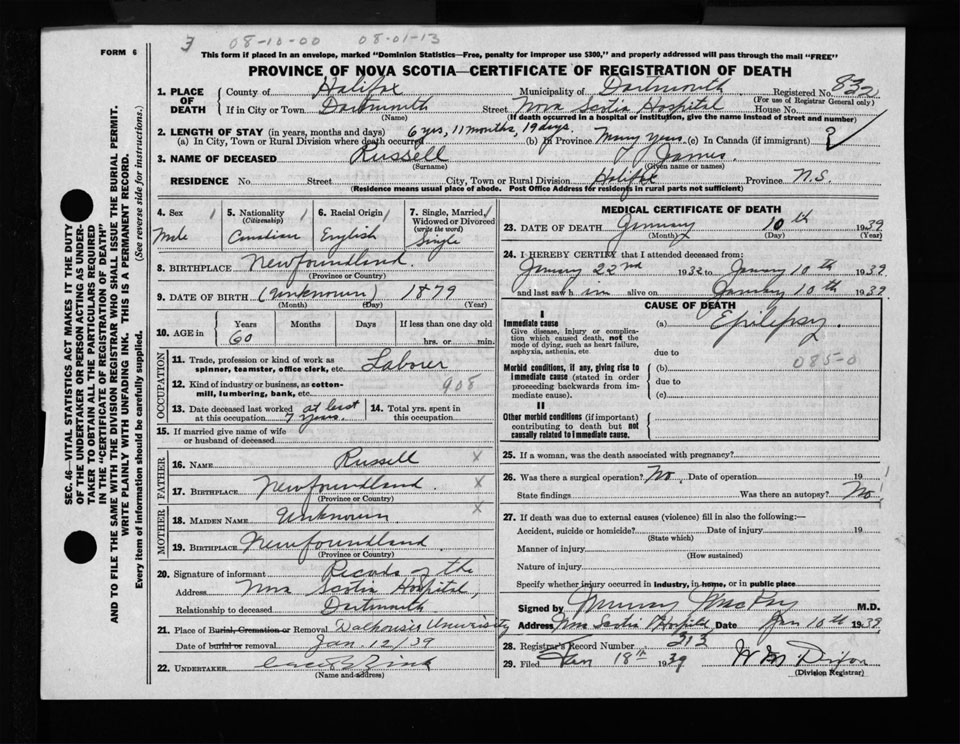 FORM 6
3 08-10-00 08-01-13
This form if placed in an envelope, marked "Dominion Statistics—Free, penalty for improper use $300," and properly addressed will pass through the mail "FREE"
PROVINCE OF NOVA SCOTIA—CERTIFICATE OF REGISTRATION OF DEATH
1. PLACE OF DEATH
County of Halifax Municipality of Dartmouth Registered No. 832
(For use of Registrar General only)
If in City or Town Dartmouth Street Nova Scotia Hospital House No.
(Name) (If death occurred in a hospital or institution, give the name instead of street and number)
2. LENGTH OF STAY (in years, months and days) 6 yrs, 11 months, 19 days.
(a) In City, Town or Rural Division where death occurred (b) In Province Many yrs. (c) In Canada (if immigrant) ?
3. NAME OF DECEASED Russell James.
(Surname) (Given name or names)
RESIDENCE No. Street City, Town or Rural Division Halifax Province N.S.
(Residence means usual place of abode. Post Office Address for residents in rural parts not sufficient)
4. Sex Male
5. Nationality (Citizenship) Canadian
6. Racial Origin English
7. Single, Married, Widowed or Divorced (write the word) Single
8. BIRTHPLACE Newfoundland.
(Province or Country)
9. DATE OF BIRTH (Unknown) 1879
(Month) (Day) (Year)
10. AGE in Years 60 Months Days If less than one day old
hrs. or min.
OCCUPATION
11. Trade, profession or kind of work as spinner, teamster, office clerk, etc. Labourer
12. Kind of industry or business, as cotton-mill, lumbering, bank, etc. 908
13. Date deceased last worked at this occupation at least 7 years.
14. Total yrs. spent in this occupation
15. If married give name of wife or husband of deceased
FATHER
16. NAME Russell x
17. BIRTHPLACE Newfoundland. x
(Province or Country)
MOTHER
18. MAIDEN NAME Unknown x
19. BIRTHPLACE Newfoundland.
(Province or Country)
20. Signature of informant Records of the
Address Nova Scotia Hospital,
Relationship to deceased Dartmouth.
21. Place of Burial, Cremation or Removal Dalhousie University
Date of burial or removal Jan. 12/39
22. UNDERTAKER Zink
(Name and address)
MEDICAL CERTIFICATE OF DEATH
23. DATE OF DEATH January 10th 1939
(Month) (Day) (Year)
24. I HEREBY CERTIFY that I attended deceased from:
January 22nd 1932 to January 10th 1939
and last saw him alive on January 10th 1939.
CAUSE OF DEATH
I
Immediate cause
Give disease, injury or complication which caused death, not the mode of dying, such as heart failure, asphyxia, asthenia, etc.
(a) Epilepsy.
due to
085-0
Morbid conditions, if any, giving rise to immediate cause (stated in order proceeding backwards from immediate cause).
(b)
due to
(c)
II
Other morbid conditions (if important) contributing to death but not causally related to immediate cause.
25. If a woman, was the death associated with pregnancy?
26. Was there a surgical operation? No. Date of operation 19
State findings Was there an autopsy? No
27. If death was due to external causes (violence) fill in also the following:—
Accident, suicide or homicide? Date of injury 19
(State which)
Manner of injury
(How sustained)
Nature of injury
Specify whether injury occurred in industry, in home, or in public place
Signed by Murray MacKay M.D.
Address Nova Scotia Hospital Date Jan 10th 1939.
28. Registrar's Record Number 313
29. Filed Jan 18th 1939 W M Dixon
(Division Registrar)
SEC. 46—VITAL STATISTICS ACT MAKES IT THE DUTY
OF THE UNDERTAKER OR PERSON ACTING AS UNDERTAKER TO OBTAIN ALL THE PARTICULARS REQUIRED
IN THE "CERTIFICATE OF REGISTRATION OF DEATH"
AND TO FILE THE SAME WITH THE DIVISION REGISTRAR WHO SHALL ISSUE THE BURIAL PERMIT.
WRITE PLAINLY WITH UNFADING INK. THIS IS A PERMANENT RECORD.
Every item of information should be carefully supplied. (See reverse side for instructions.)